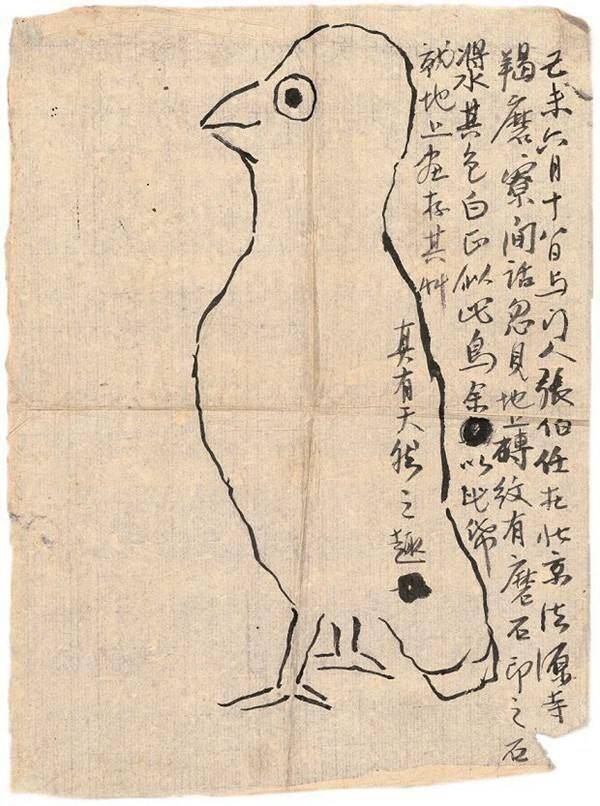 己未六月十八日与门人張伯任在北京法源寺
羯磨寮间話忽見地上磚紋有磨石印之石
漿水其色白正似此鳥余以此帋
就地上畫存其艸
真有天然之趣